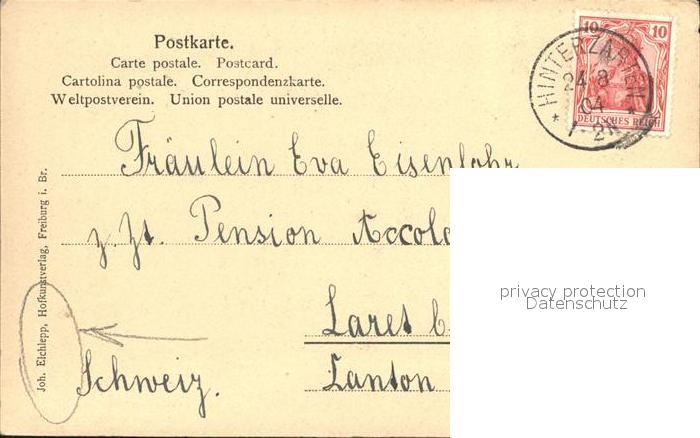 Postkarte.
Carte postale. Postcard.
Cartolina postale. Correspondenzkarte.
Weltpostverein. Union postale universelle.
10 10
DEUTSCHES REICH
HINTERZARTEN
24 8
04
* 1-2N *
Fräulein Eva Eisenlohr
z. Zt. Pension Accola
Laret b.
Canton
Schweiz.
Joh. Elchlepp, Hofkunstverlag, Freiburg i. Br.
privacy protection
Datenschutz